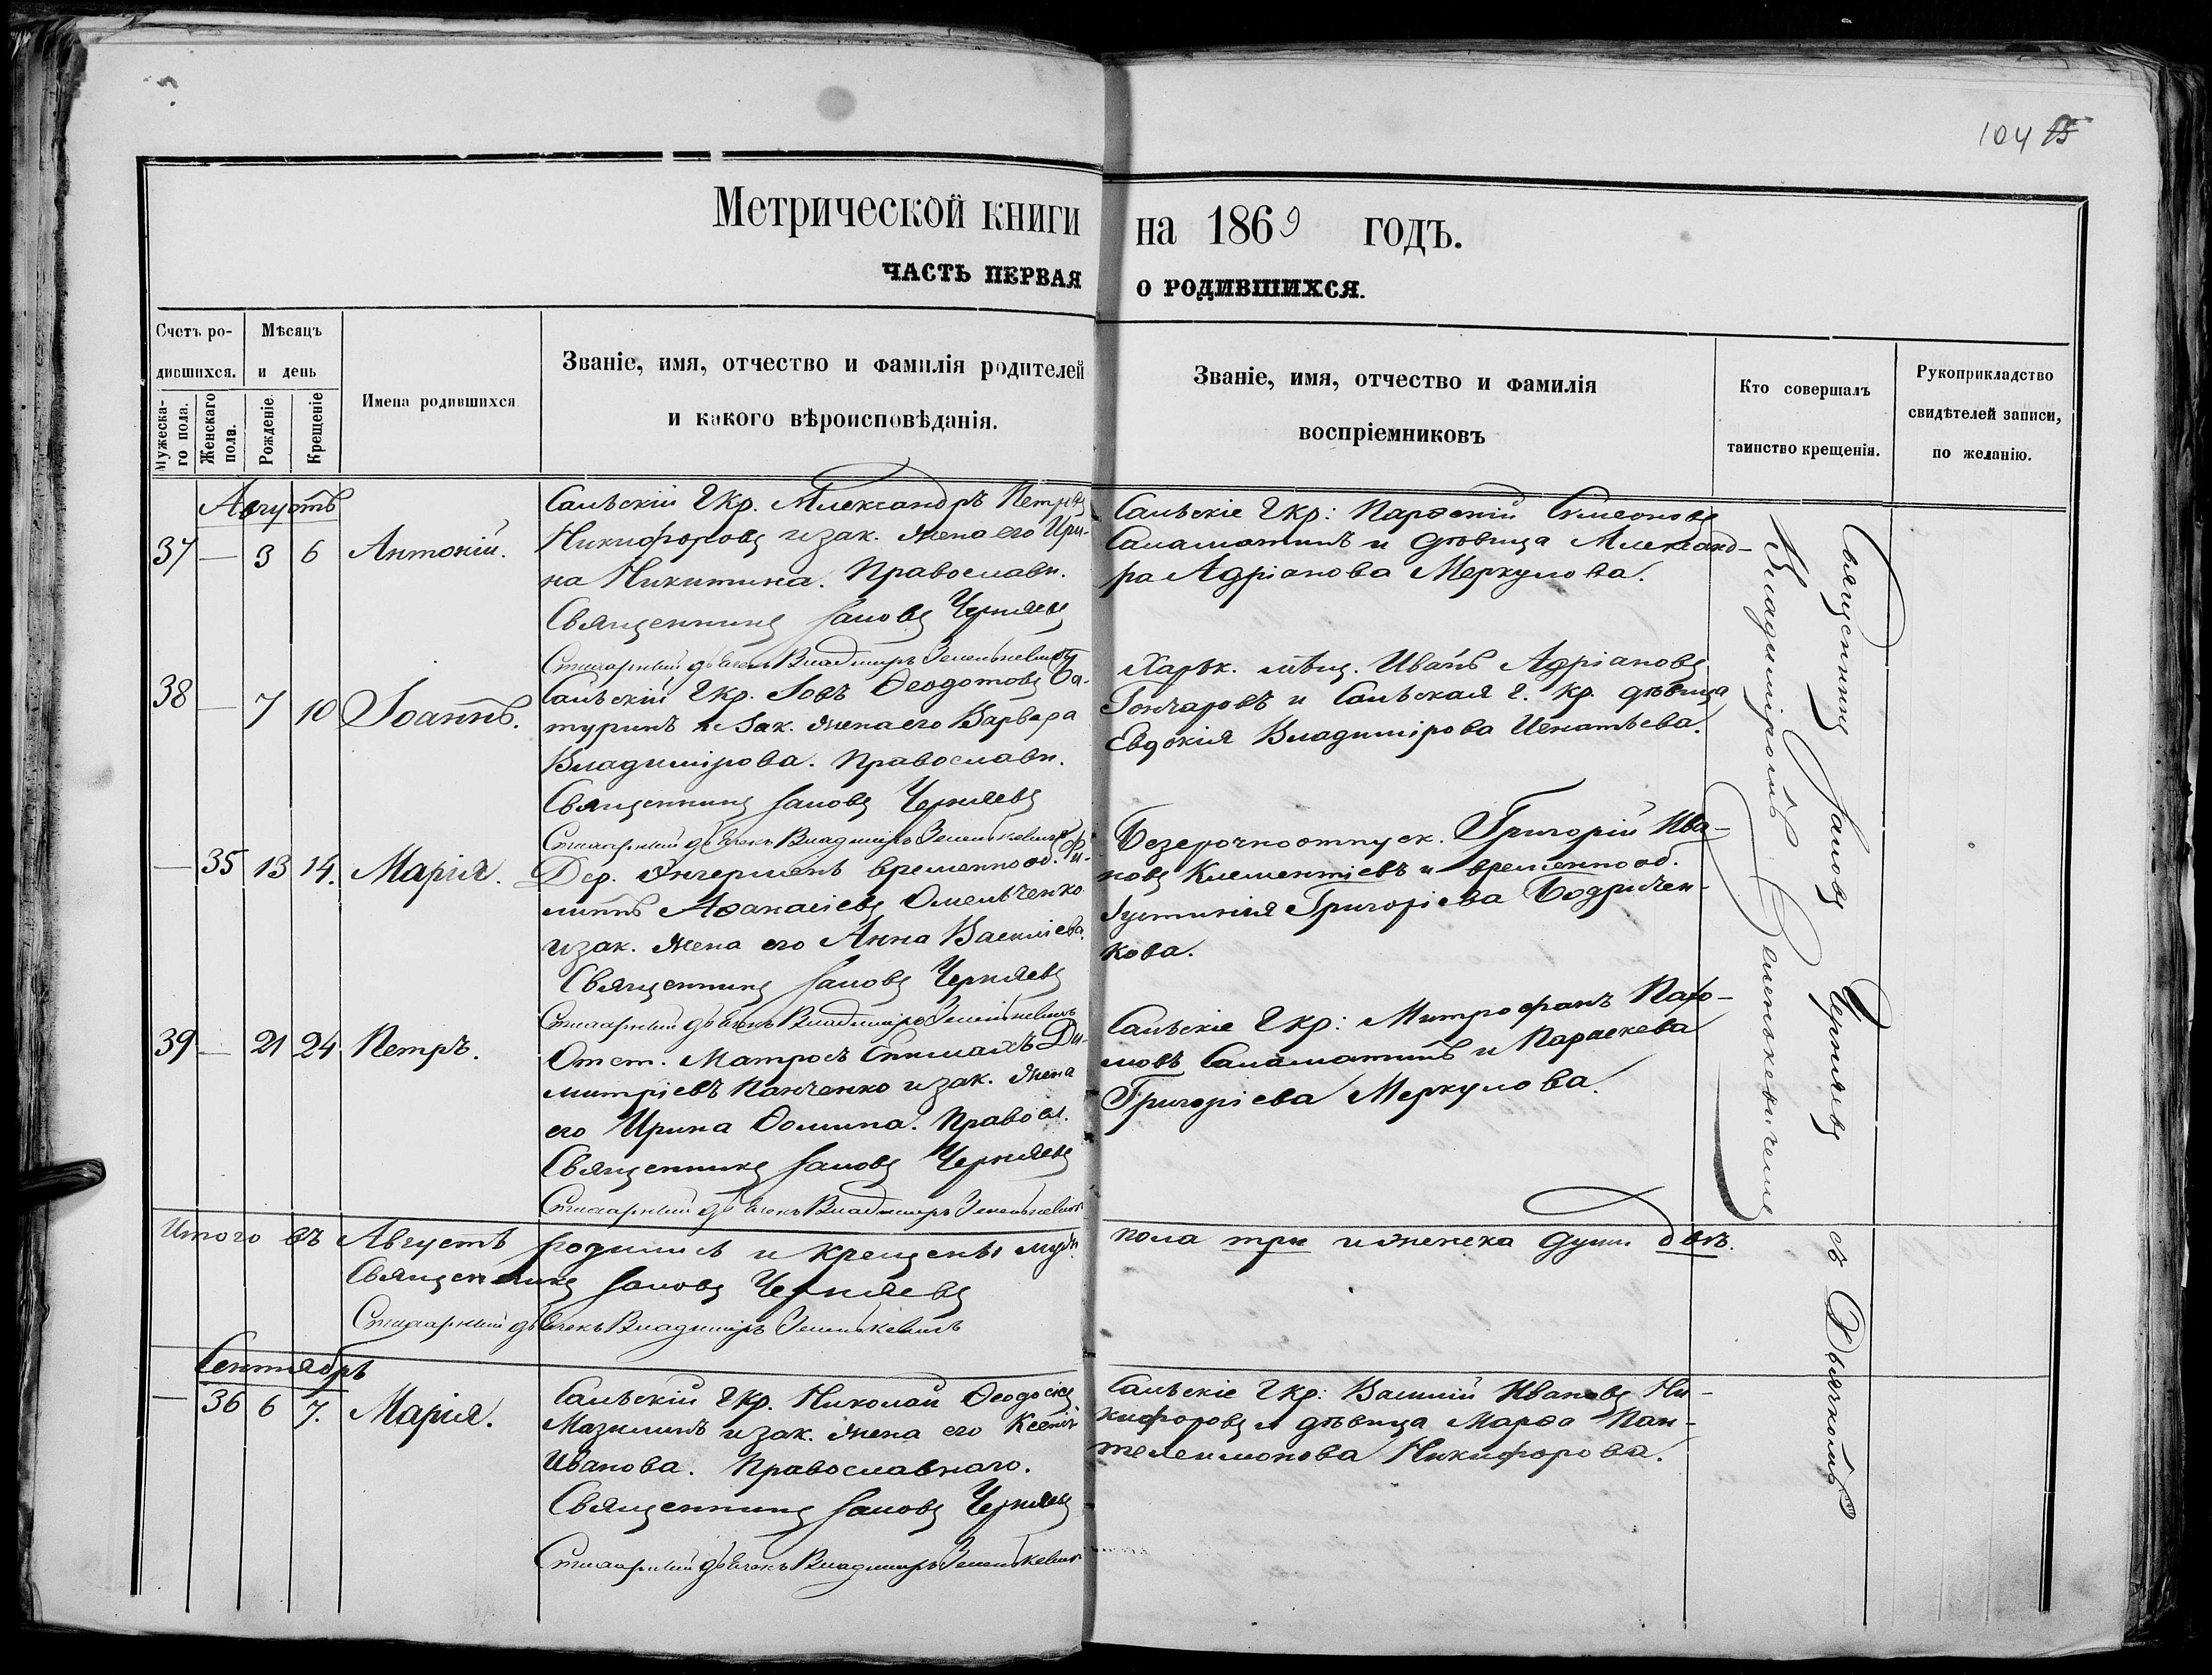 104 15
Метрической книги на 1869 годъ.
ЧАСТЬ ПЕРВАЯ О РОДИВШИХСЯ.
Счетъ ро-
дившихся.
Мужеска-
го пола.
Женскаго
пола.
Мѣсяцъ
и день
Рожденіе.
Крещеніе
Имена родившихся
Званіе, имя, отчество и фамилія родителей
и какого вѣроисповѣданія.
Званіе, имя, отчество и фамилія
воспріемниковъ
Кто совершалъ
таинство крещенія.
Рукоприкладство
свидѣтелей записи,
по желанію.
Августъ
37 — 3 6 Антоній.
Александръ Петровъ
Никифоровъ и зак. жена его Ири-
на Никитина. Православн.
Священникъ Іаковъ Черняевъ
Стихарный дьячекъ Владиміръ Зеленкевичъ
Парѳеній Симеоновъ
Саламатинъ и дѣвица Александ-
ра Адріанова Меркулова.
38 — 7 10 Іоаннъ.
Іовъ Ѳеодотовъ Ба-
туринъ и зак. жена его Варвара
Владимірова. Православн.
Священникъ Іаковъ Черняевъ
Стихарный дьячекъ Владиміръ Зеленкевичъ
Харьк. мѣщ. Иванъ Адріановъ
Гончаровъ и г. кр. дѣвица
Евдокія Владимірова Игнатьева.
— 35 13 14. Марія.
Дер. временнооб. Фи-
липпъ Аѳанасіевъ Омельченко
и зак. жена его Анна Василіева.
Священникъ Іаковъ Черняевъ
Стихарный дьячекъ Владиміръ Зеленкевичъ
Безсрочноотпуск. Григорій Ива-
новъ Клементіевъ и временнооб.
Іустинія Григоріева Бодричен-
кова.
39 — 21 24 Петръ.
Отст. Матросъ Димитріевъ Панченко и зак. жена
его Ирина Ѳомина. Правосл.
Священникъ Іаковъ Черняевъ
Стихарный дьячекъ Владиміръ Зеленкевичъ
Митрофанъ Пахо-
мовъ Саламатинъ и Параскева
Григоріева Меркулова.
Итого въ Августѣ родились и крещены муж. пола три и женска душ двѣ.
Священникъ Іаковъ Черняевъ
Стихарный дьячекъ Владиміръ Зеленкевичъ
Сентябрь
— 36 6 7. Марія.
Николай Ѳеодосіевъ
Мазилинъ и зак. жена его Ксенія
Иванова. Православнаго.
Священникъ Іаковъ Черняевъ
Стихарный дьячекъ Владиміръ Зеленкевичъ
Василій Ивановъ Ни-
кифоровъ и дѣвица Марѳа Пан-
телеимонова Никифорова.
Священникъ Іаковъ Черняевъ съ Дьячкомъ
Владиміромъ Зеленкевичемъ